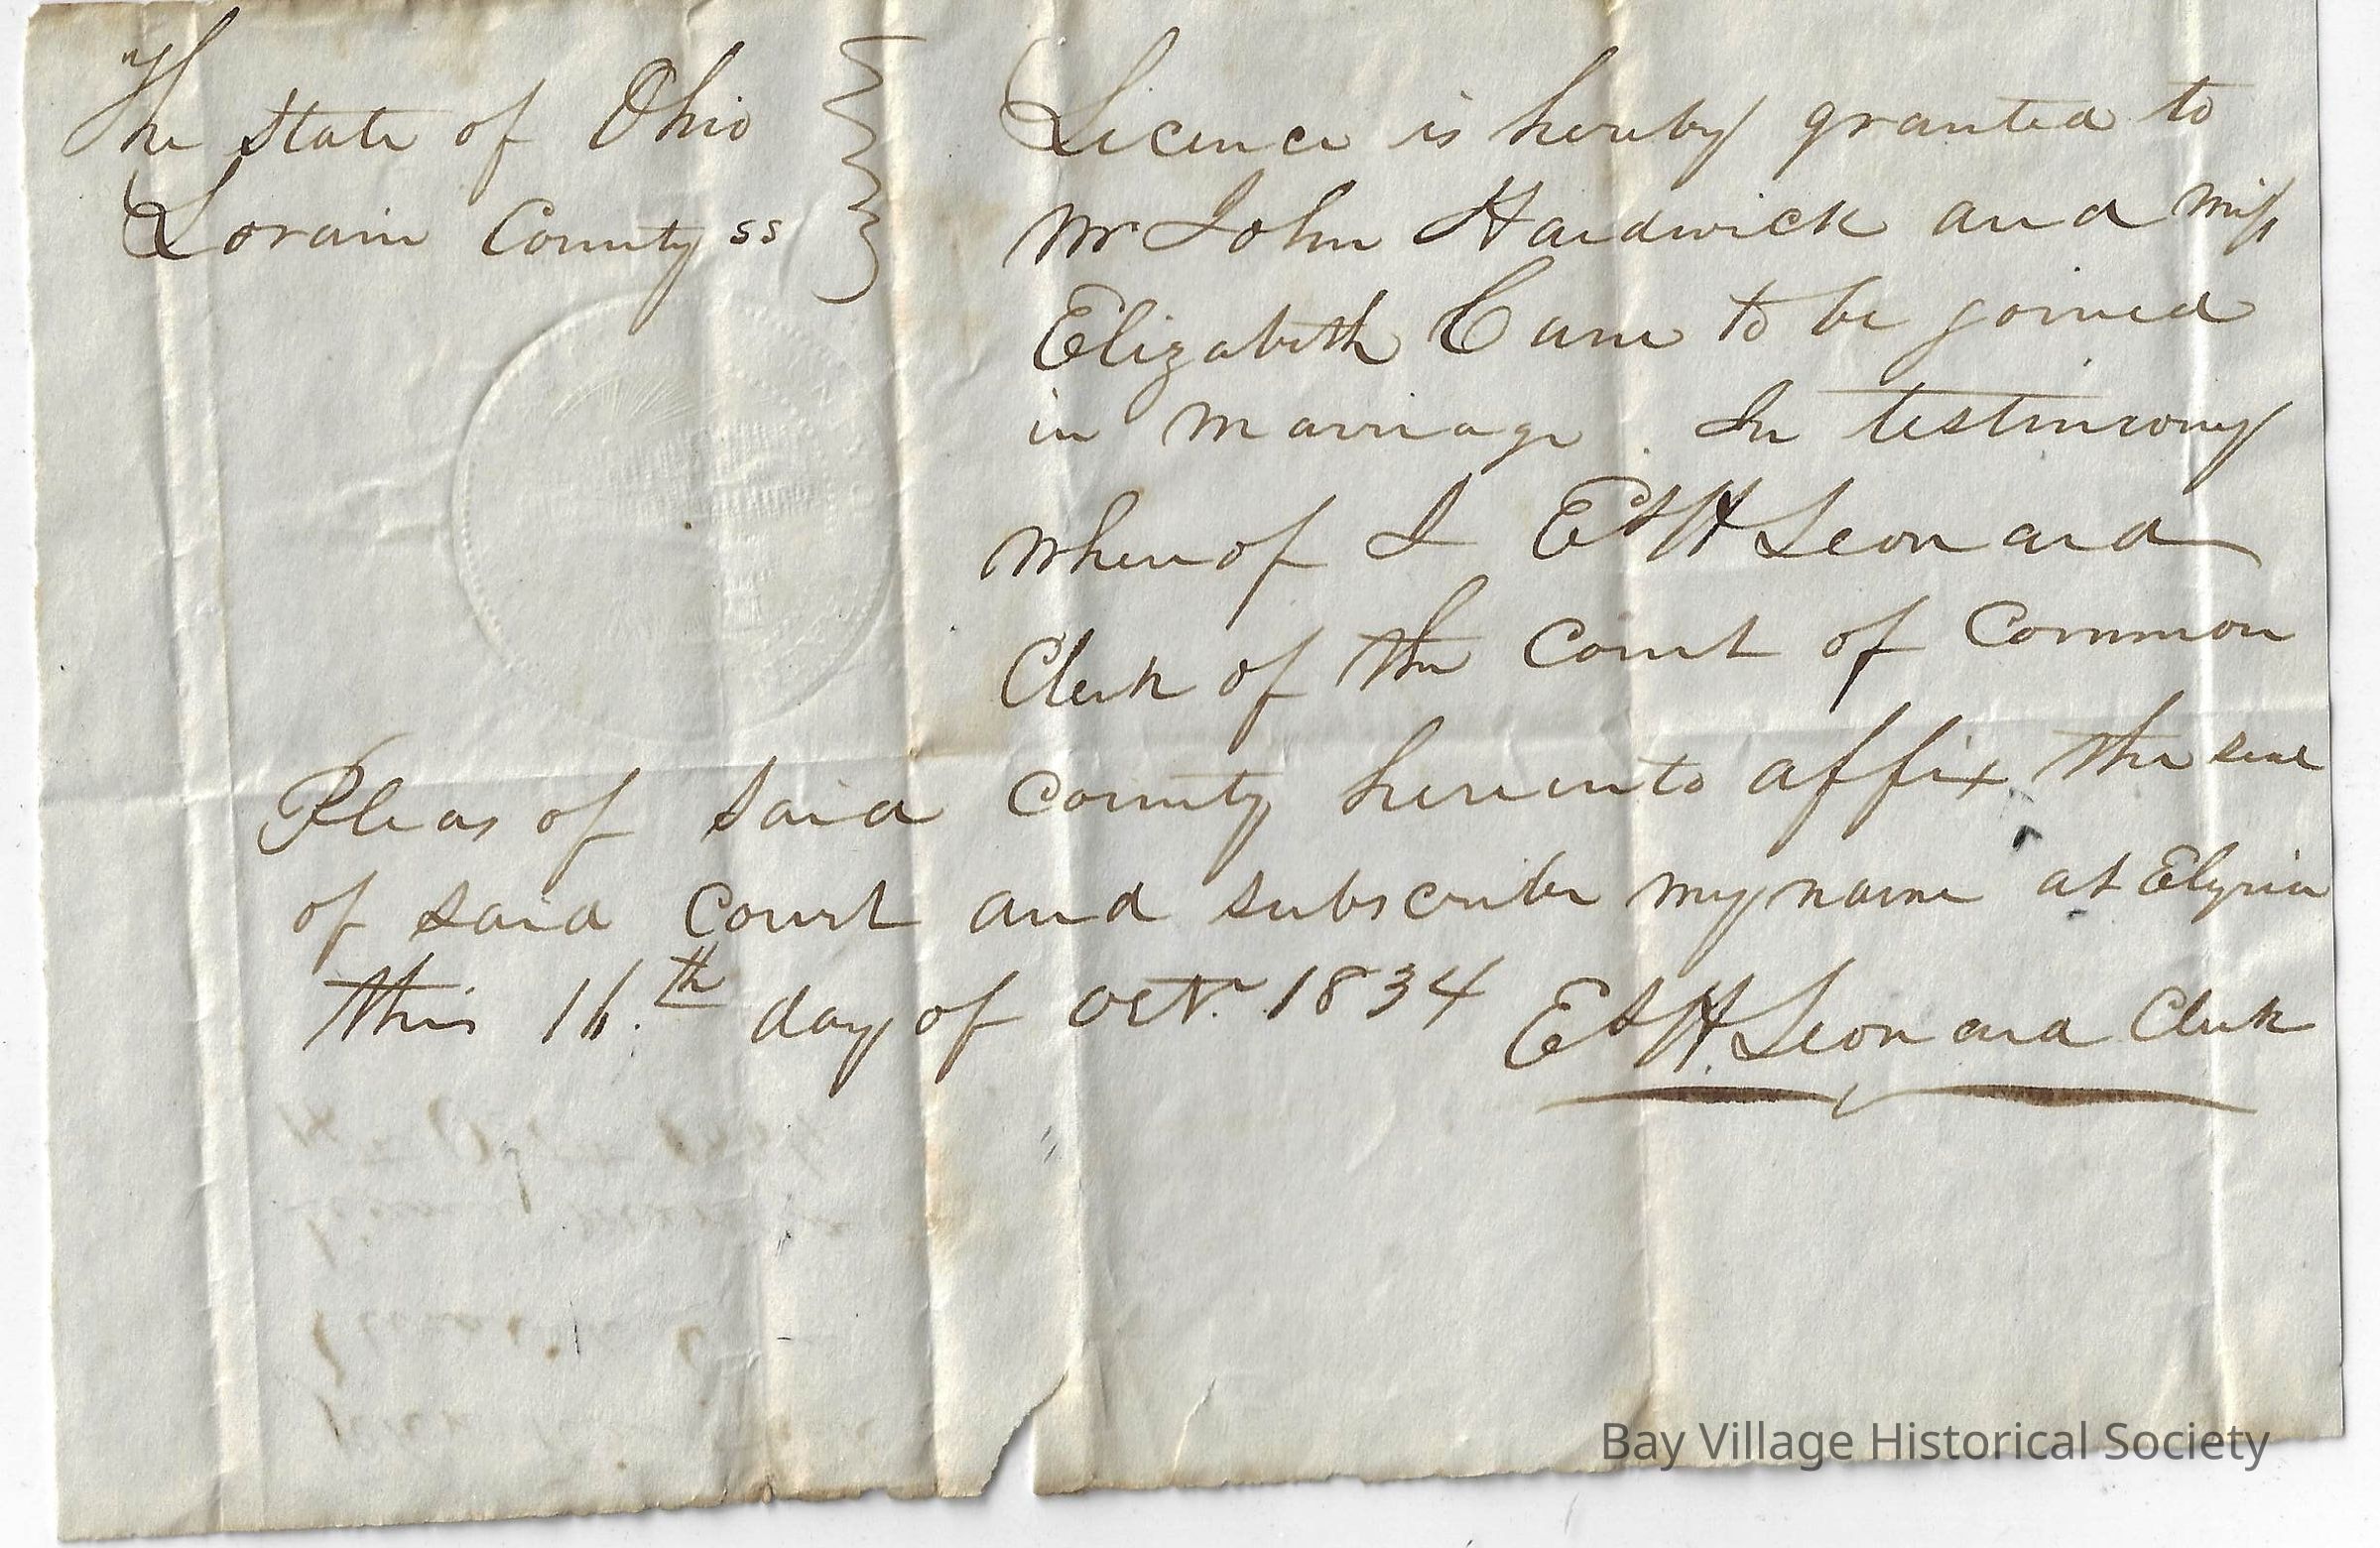 The State of Ohio
Lorain County ss
Licence is hereby granted to
Mr John Hardwick and Miss
Elizabeth Cane to be joined
in marriage. In testimony
whereof I E S H Leonard
Clerk of the Court of Common
Pleas of said County hereunto affix the seal
of said Court and subscribe my name at Elyria
this 16.th day of Oct. 1834 E S H. Leonard Clerk
Bay Village Historical Society